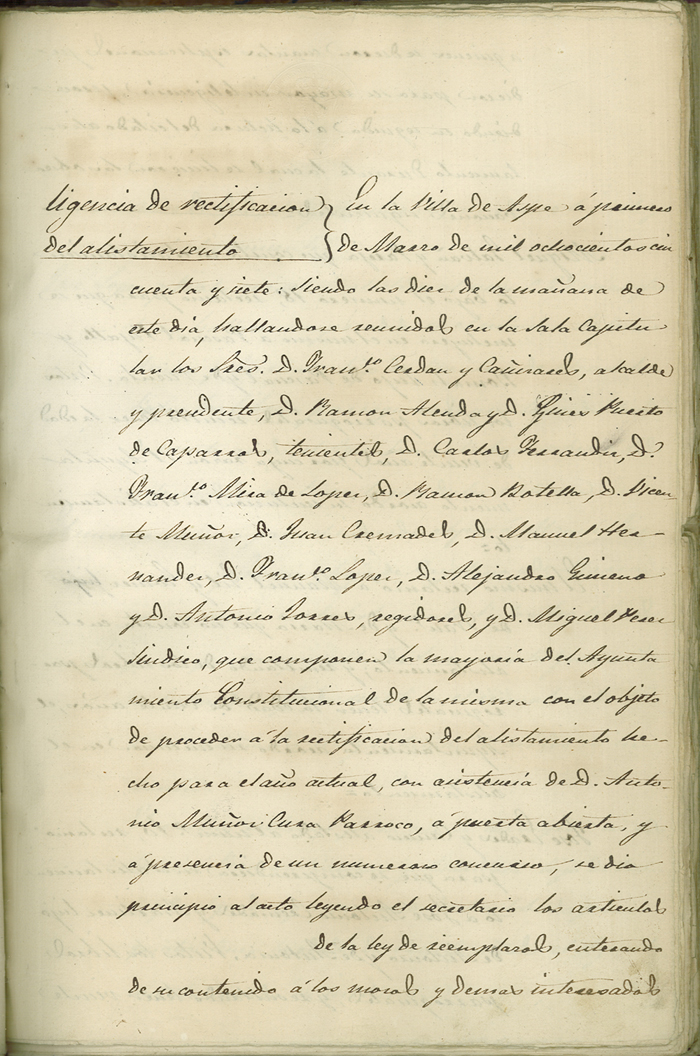 ligencia de rectificacion } En la Villa de Aspe á primero
del alistamiento } de Marzo de mil ochocientos cin
cuenta y siete: siendo las diez de la mañana de
este dia, hallandose reunidos en la Sala Capitu
lar los Sres. D. Fran.co Cerdan y Cañizares, alcalde
y presidente, D. Ramon Alenda y D. Gines Puerto
de Caparros, tenientes, D. Carlos Ferrandiz, D.
Fran.co Mira de Lopez, D. Ramon Botella, D. Vicen
te Muñoz, D. Juan Cremades, D. Manuel Her-
nandez, D. Fran.co Lopez, D. Alejandro Gimeno
y D. Antonio Torres, regidores, y D. Miguel Perez
Sindico, que componen la mayoría del Ayunta
miento Constitucional de la misma con el objeto
de proceder á la rectificacion del alistamiento he-
cho para el año actual, con asistencia de D. Anto-
nio Muñoz Cura Parroco, á puerta abierta, y
á presencia de un numeroso concurso, se dio
principio al acto leyendo el secretario los articulos
de la ley de reemplazos, enterando
de su contenido á los mozos y demas interesados